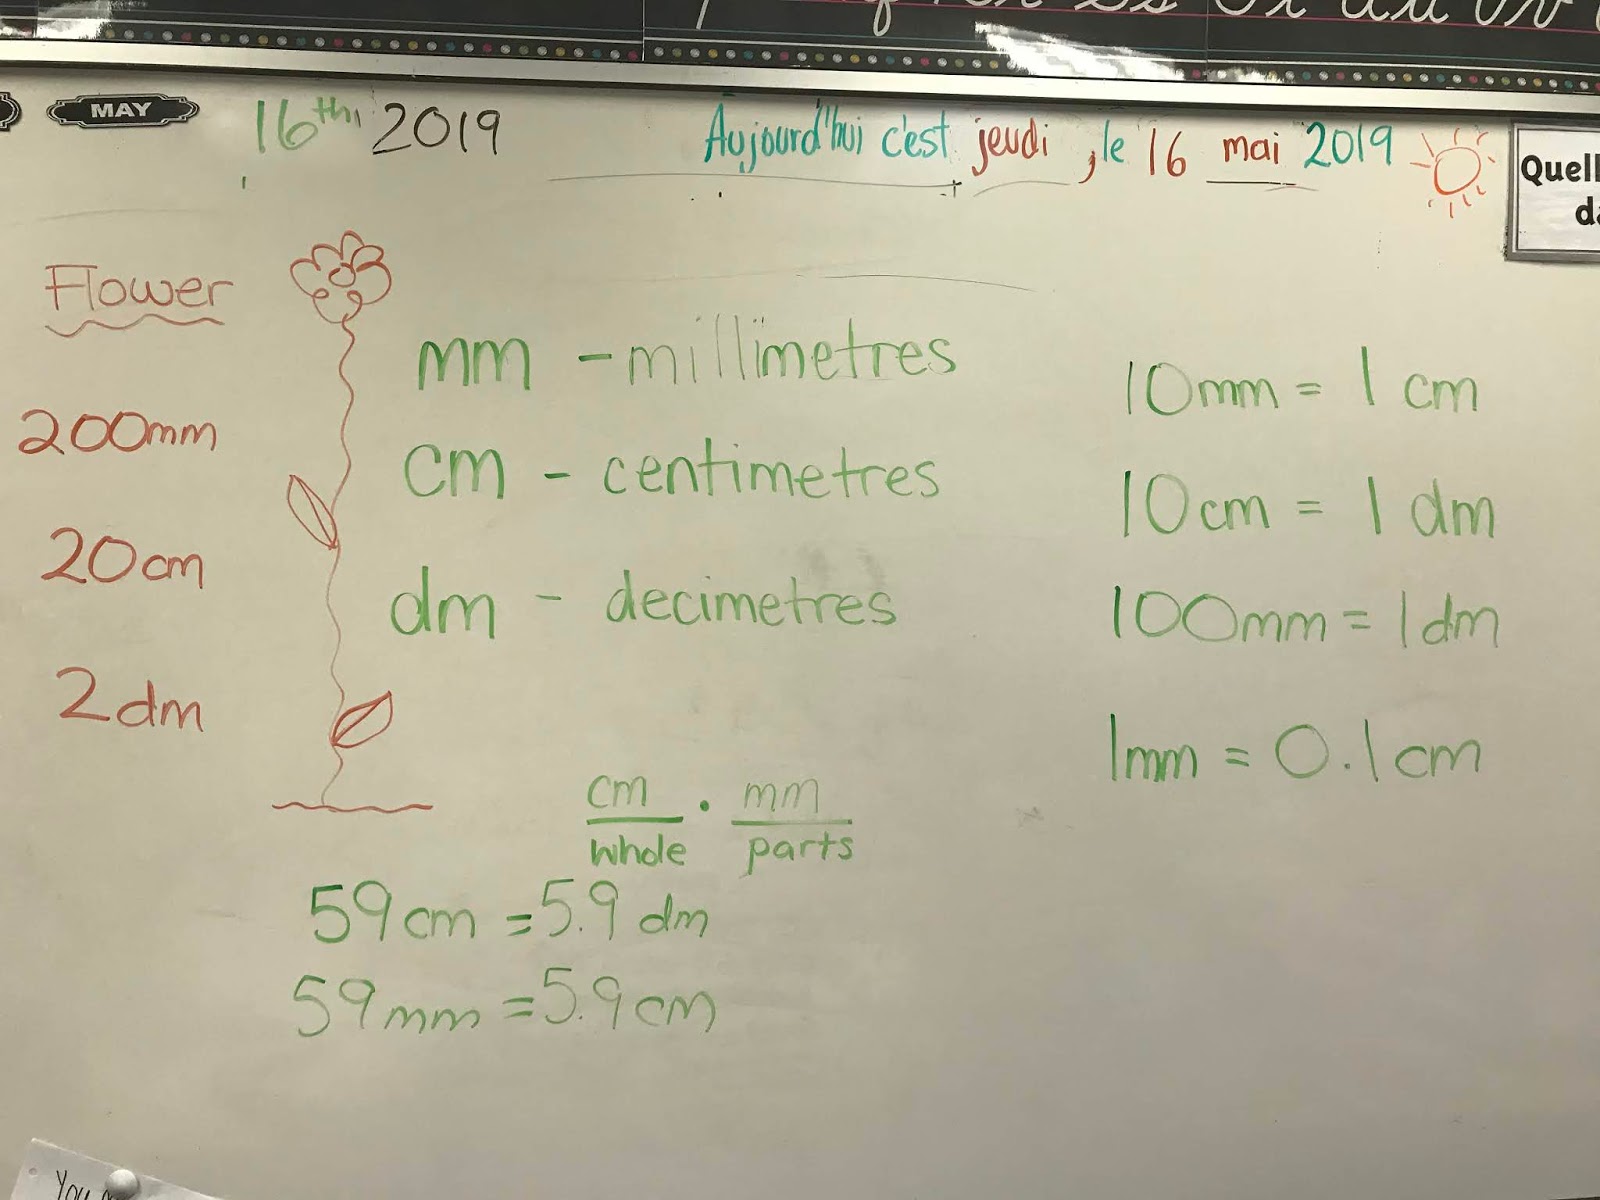 MAY 16th, 2019
Aujourd'hui c'est jeudi, le 16 mai 2019
Flower
200mm
20cm
2dm
mm - millimetres
cm - centimetres
dm - decimetres
10mm = 1 cm
10cm = 1 dm
100mm = 1dm
1mm = 0.1cm
cm . mm
whole parts
59cm = 5.9 dm
59mm = 5.9cm
You